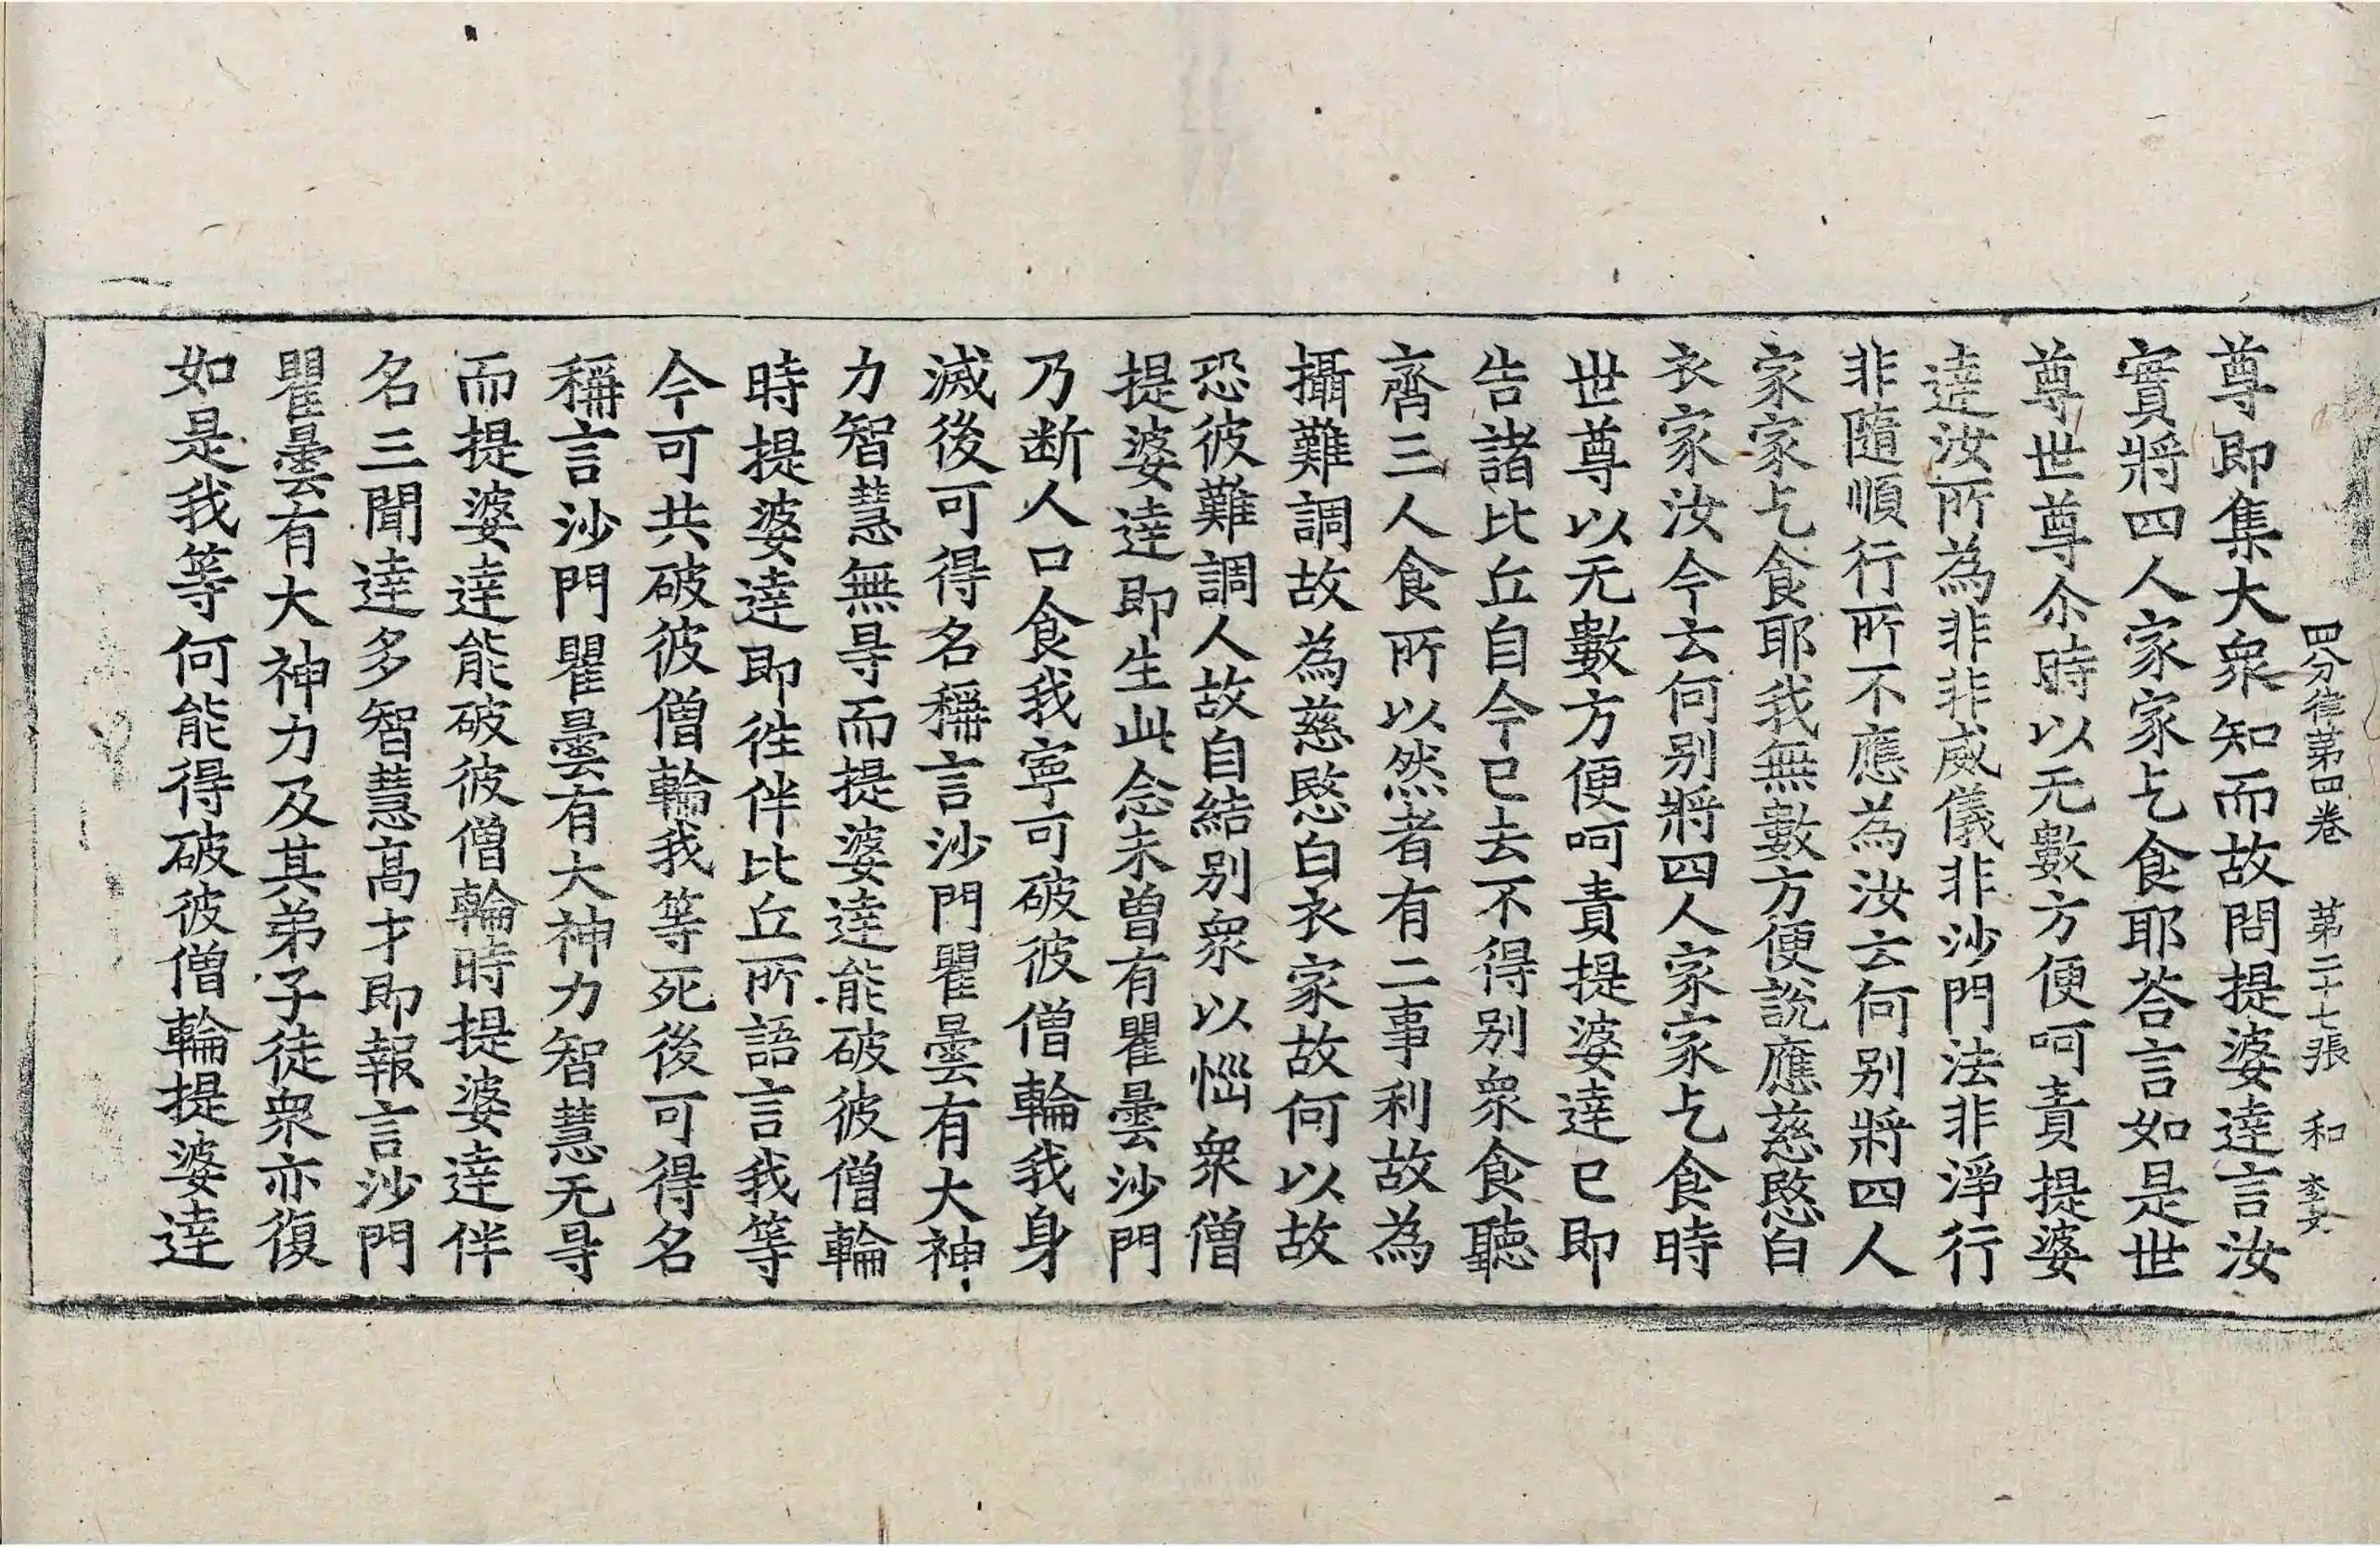 四分律第四卷　第二十七張　和
尊即集大衆知而故問提婆達言汝
實將四人家家乞食耶荅言如是世
尊世尊尒時以无數方便呵責提婆
達汝所為非非威儀非沙門法非淨行
非隨順行所不應為汝云何别將四人
家家乞食耶我無數方便說應慈愍白
衣家汝今云何别將四人家家乞食時
世尊以无數方便呵責提婆達已即
告諸比丘自今已去不得别衆食聽
齊三人食所以然者有二事利故為
攝難調故為慈愍白衣家故何以故
恐彼難調人故自結别衆以惱衆僧
提婆達即生此念未曾有瞿曇沙門
乃断人口食我寧可破彼僧輪我身
滅後可得名稱言沙門瞿曇有大神
力智慧無㝵而提婆達能破彼僧輪
時提婆達即徃伴比丘所語言我等
今可共破彼僧輪我等死後可得名
稱言沙門瞿曇有大神力智慧无㝵
而提婆達能破彼僧輪時提婆達伴
名三聞達多智慧高才即報言沙門
瞿曇有大神力及其弟子徒衆亦復
如是我等何能得破彼僧輪提婆達